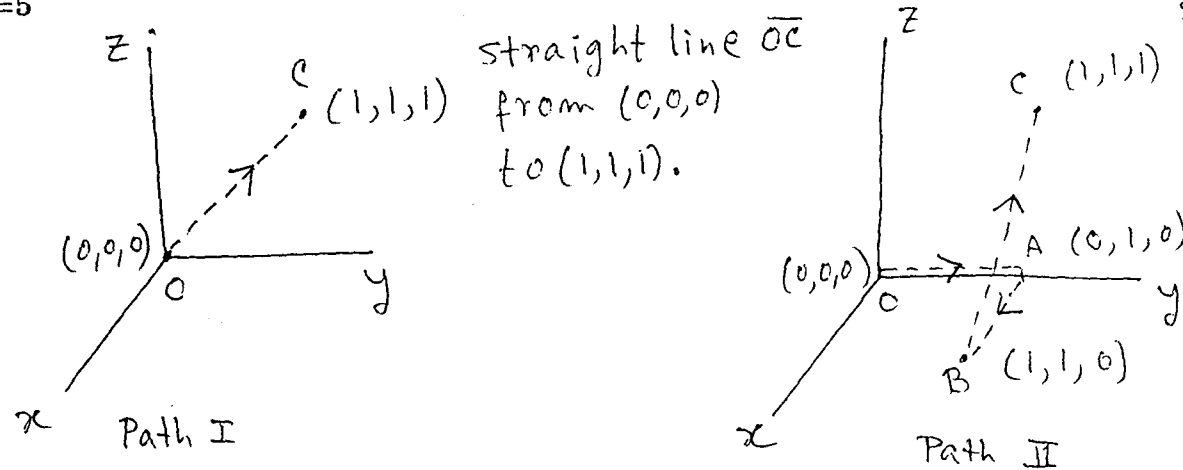 =5
Z
C
(1,1,1)
(0,0,0)
O
y
x
Path I
straight line OC
from (0,0,0)
to (1,1,1).
Z
C (1,1,1)
A (0,1,0)
(0,0,0)
O
y
B (1,1,0)
x
Path II